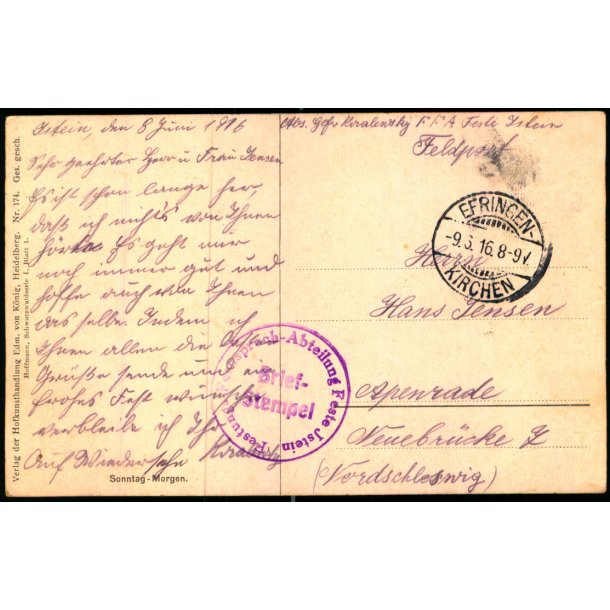 Istein, den 8 Juni 1916
Sehr geehrter Herr u Frau Jensen
Es ist schon lange her,
daß ich nichts von Ihnen
hörte Es geht mir
noch immer gut und
hoffe auch von Ihnen
das selbe. Indem ich
Ihnen allen die
Grüße sende und ein
frohes Fest wünsche
verbleibe ich Ihr
Auf Wiedersehn
Sonntag-Morgen.
Verlag der Hofkunsthandlung Edm. von König, Heidelberg. Nr. 174. Ges. gesch.
Hoffmann, Schwarzwaldserie I, Blatt 1.
Abs. Gefr Koralensky F F A Feste Istein
Feldpost
EFRINGEN-
-9.6.16.8-9V.
KIRCHEN
Herrn
Hans Jensen
Apenrade
Neuebrücke
(Nordschleswig)
Sprach-Abteilung Feste Istein
Festungs
Brief-
Stempel